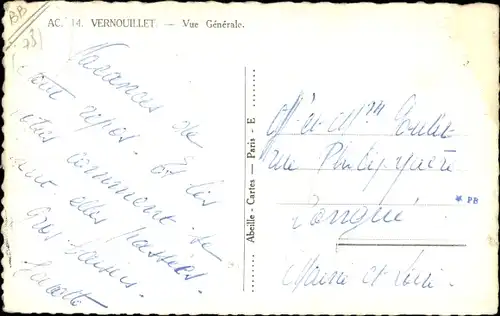 BB
AC. 14. VERNOUILLET. - Vue Générale.
Vacances de
tout repos. Et les
vôtres comment se
sont elles passées.
Gros baisers.
Abeille - Cartes — Paris - E
Mr et Mme
rue
Longué
* PB
Maine et Loire